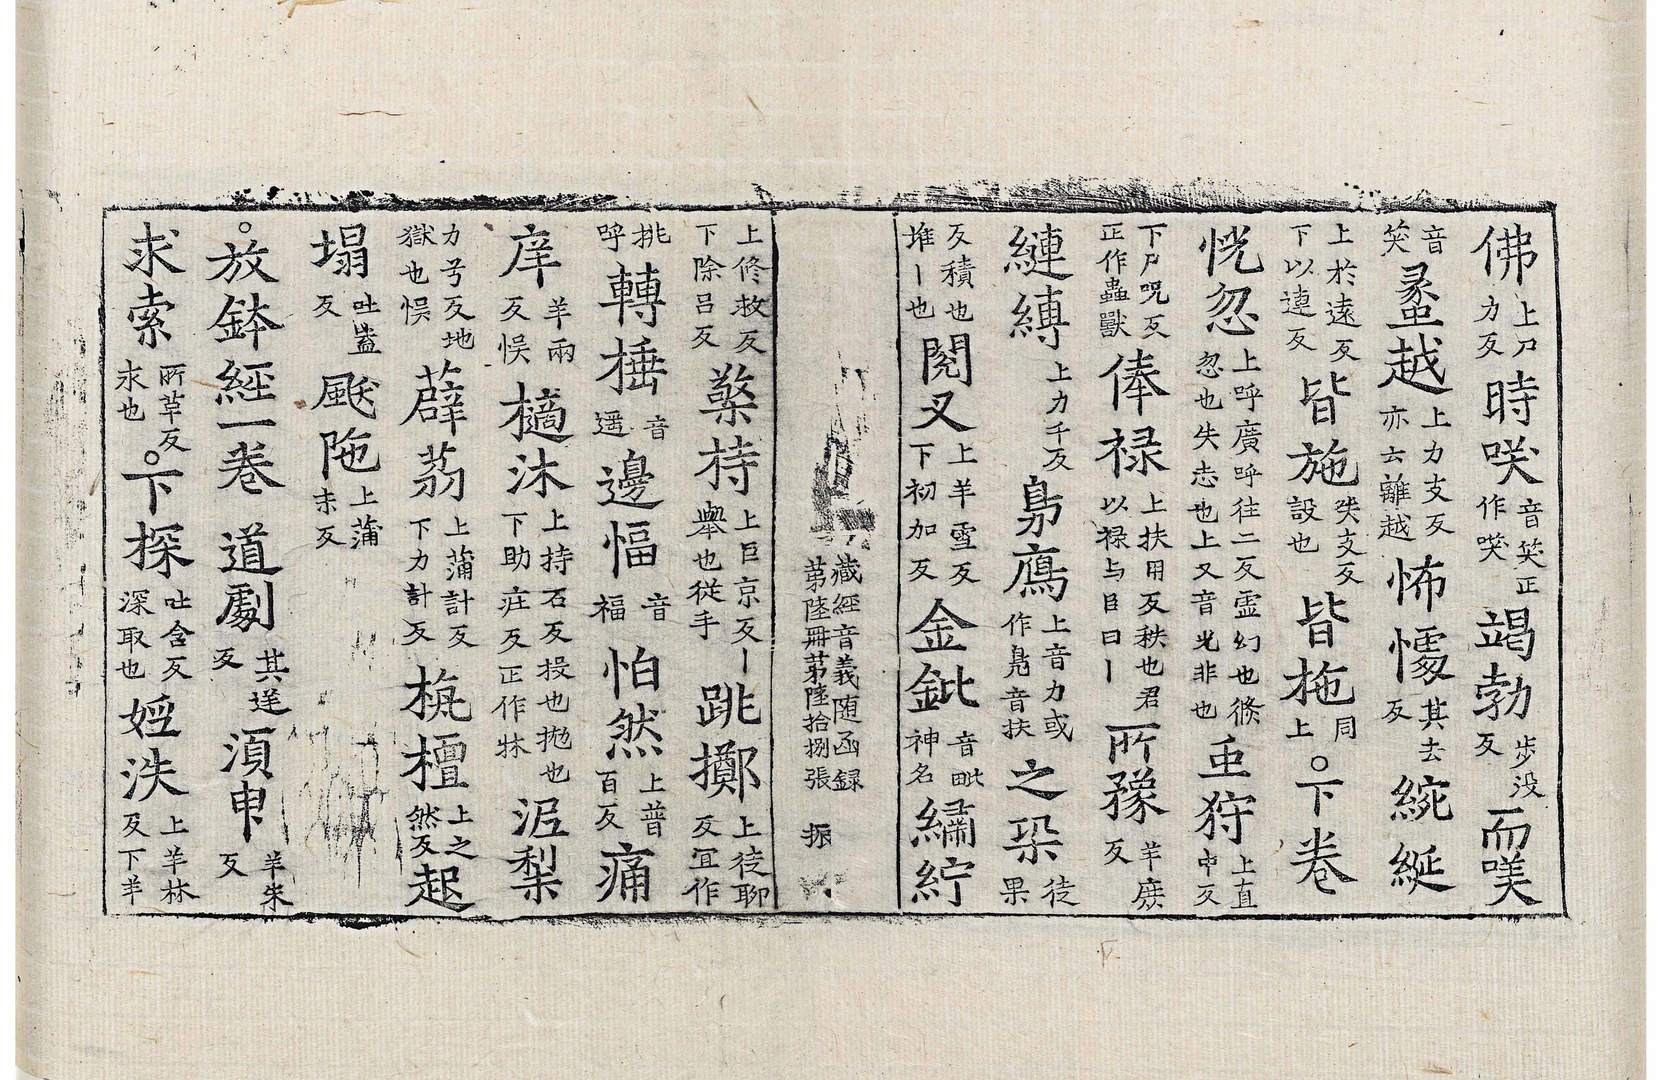 佛上刀力反時咲音笑正作𥬇竭勃步没反而㗛
音笑㚇越上力支反亦云離越怖懅其去反綩綖
上於遠反下以連反皆施失支反設也皆拖同上。下卷
恍忽上呼廣呼往二反虛幻也倐忽也失志也上又音光非也䖝狩上直中反
下尸呪反正作蟲獸俸禄上扶用反秩也君以禄与臣曰丨所豫羊庶反
縺縛上力千反鳧鴈上音力或作鳬音扶之垛徒果
反積也堆丨也閱叉上羊雪反下初加反金鈚音毗神名繡紵
藏經音義随函録第陸冊第陸拾捌張 振
上修救反下除吕反擎持上巨京反丨舉也從手跳擲上徒聊反冝作
挑呼轉捶音遥邊愊音福怕然上普百反痛
庠羊兩反悮擿沐上持石反投也抛也下助庄反正作牀泥犁
力兮反地獄也悮薜荔上蒲計反下力計反栴檀上之然反起
塌吐盍反颰陁上蒲末反
。放鉢經一卷 道劇其逆反湏申羊朱反
求索所革反求也。下探吐含反深取也婬泆上羊林反下羊